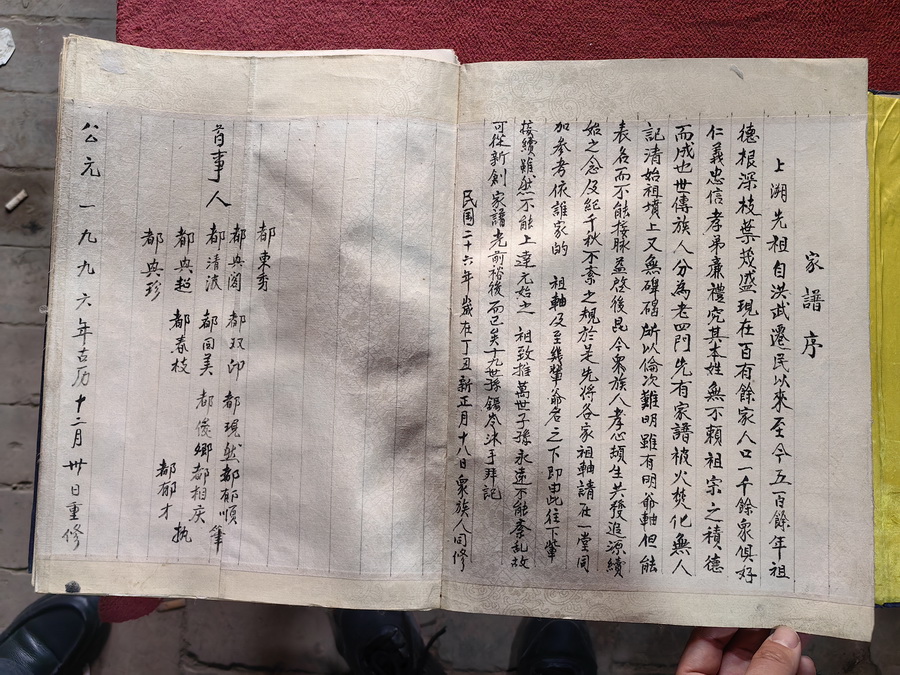 家譜序
上溯先祖自洪武遷民以來至今五百餘年祖
德根深枝葉茂盛現在百有餘家人口一千餘衆俱好
仁義忠信孝弟廉禮究其本姓無不賴祖宗之積德
而成也世傳族人分為老四門先有家譜被火焚化無人
記清始祖墳上又無碑碣所以倫次難明雖有明爺軸但能
表名而不能接脉益啓後昆今衆族人孝心頓生共發追源續
始之念及紀千秋不紊之規於是先將各家祖軸請在一堂同
加參考依誰家的 祖軸及至幾輩爺名之下即由此往下輩
接續雖然不能上達元始之 祖致推萬世子孫永遠不能紊乱故
可從新創家譜光前裕後而已矣十九世孫錫岺沐手拜記
民國二十六年歲在丁丑新正月十八日衆族人同修
都東秀
都典阁 都双印 都現然 都郁順
首事人 都清波 都同美 都俊卿 都相庆 筆
都典超 都春枝 都郁才 执
都典珍
公元一九九六年古历十二月卅日重修